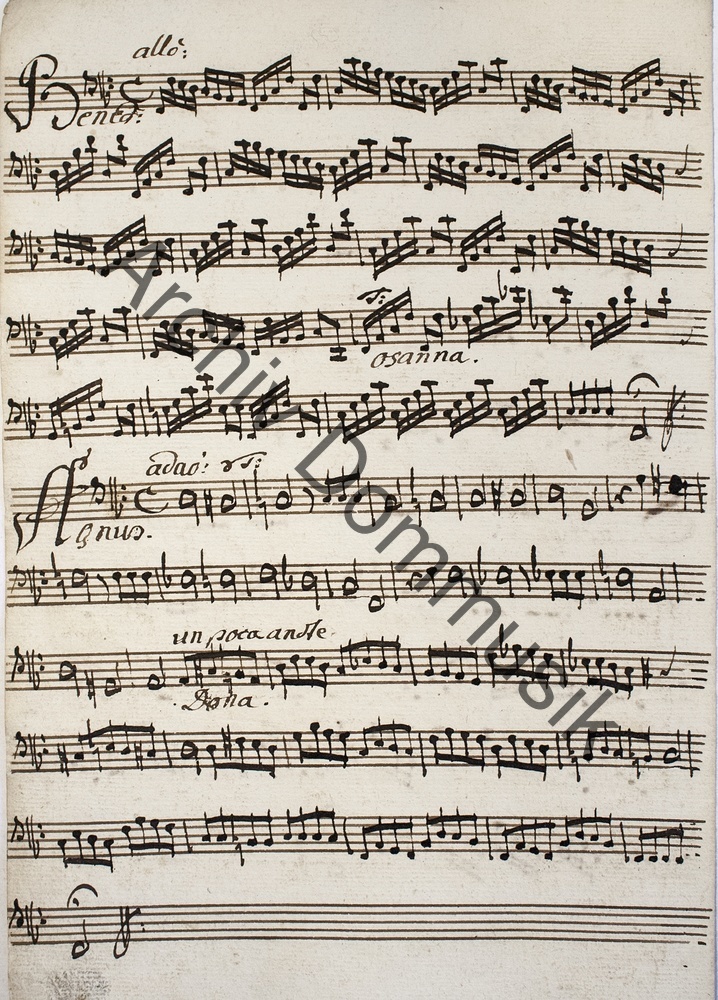 allo:
Bened:
T:
osanna.
adao: T:
Agnus.
un poco andte
Dona.
Archiv Dommusik